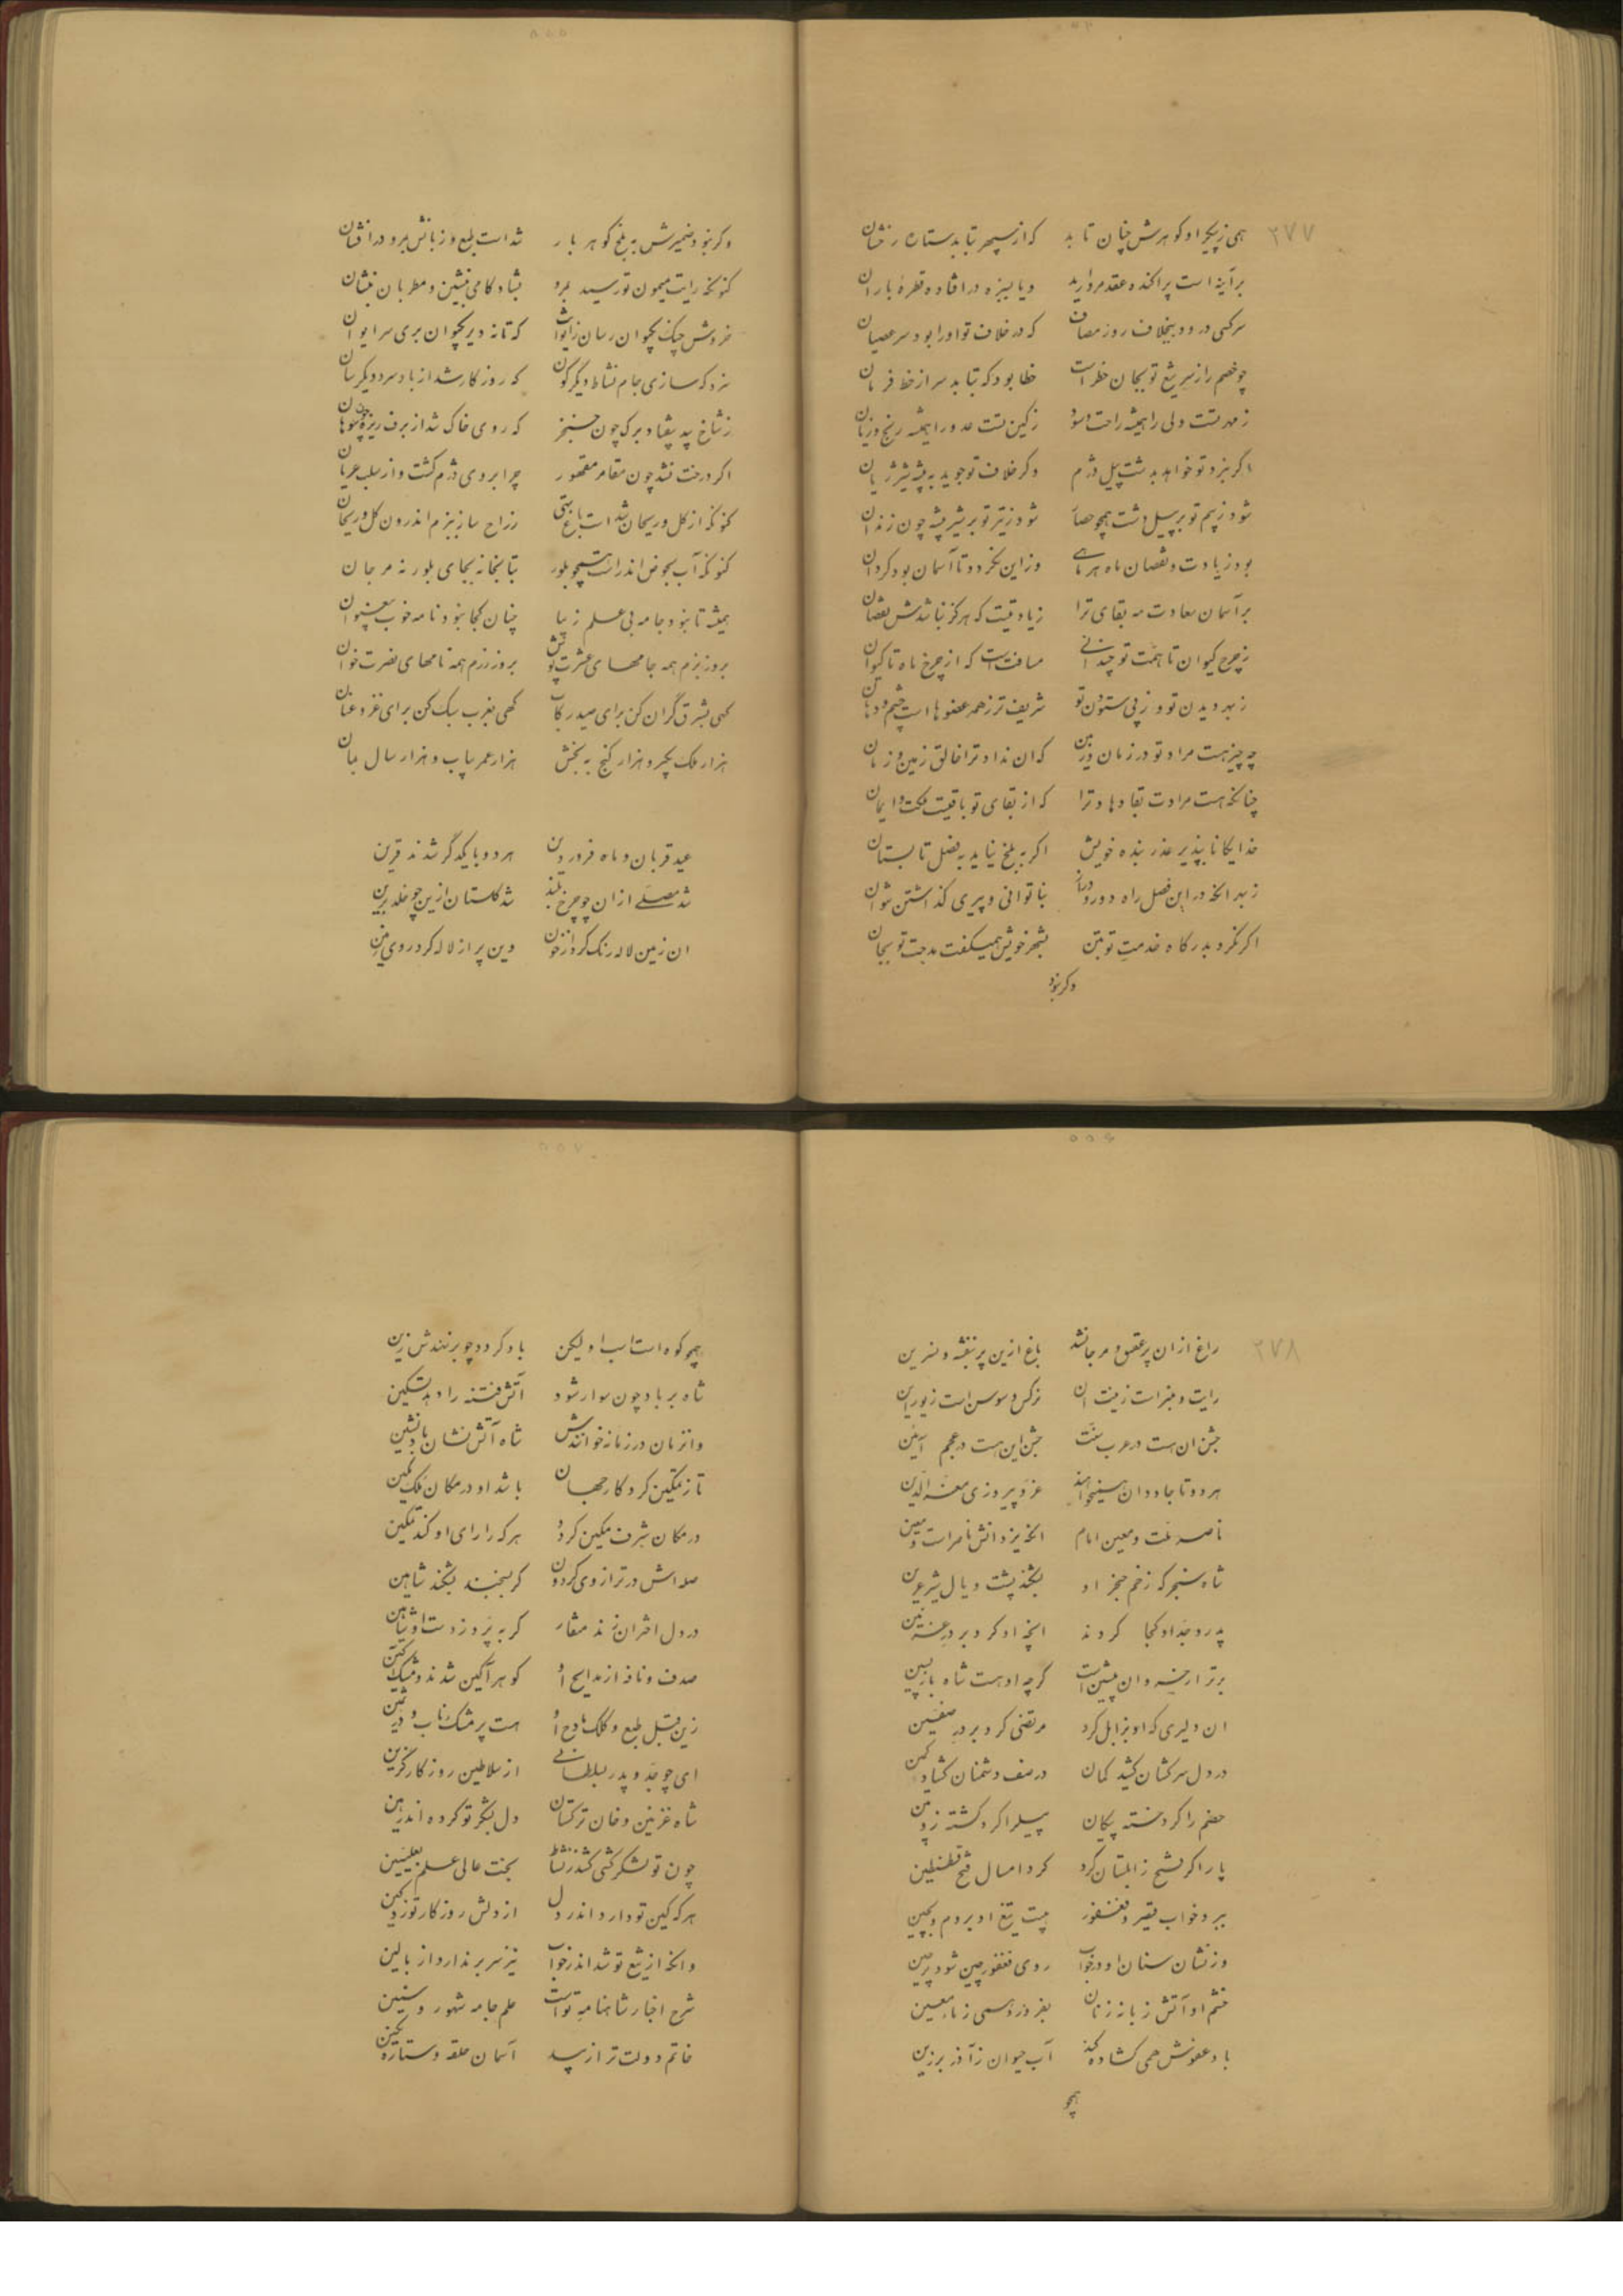 ۲۷۷
همی ز پیکر او گوهرش چنان تابد که از سپهر بتابد ستاره رخشان
بر آینه است پراکنده عقد مروارید و یا بسبزه در افتاده قطرهٔ باران
سرکسی در ود بیخلاف روز مصاف که در خلاف تو او را بود سر عصیان
چو خصم را ز سر تیغ تو بجان خطر است خطا بود که بتابد سر از خط فرمان
ز مهر تست ولی را همیشه راحت و سود ز کین تست عدو را همیشه رنج و زیان
اگر نبرد تو خواهد بدشت پیل دژم وگر خلاف تو جوید به بیشه شیر ژیان
شود ز بیم تو بر پیل دشت همچو حصار شود ز تیر تو بر شیر بیشه چون زندان
بود زیادت و نقصان ماه هر ماهی وز این نگردد تا آسمان بود گردان
بر آسمان سعادت مه بقای ترا زیادتیست که هرگز نباشدش نقصان
ز چرخ کیوان تا همت تو چندانی مسافت است که از چرخ ماه تا کیوان
ز بهر دیدن تو وز پی ستودن تو شریف‌تر ز همه عضوها است چشم و دهان
چه چیز هست مراد تو در زمان و زمین که ان نداد ترا خالق زمین و زمان
چنانکه هست مرادت بقا دهاد ترا که از بقای تو باقیست ملکت و ایمان
خدایگانا بپذیر عذر بنده خویش اگر به بلخ نیاید به فصل تابستان
ز بهر انکه در این فصل راه دور و دراز بناتوانی و پیری گذاشتن نتوان
اگر نکرد بدرگاه خدمت تو بتن بشهر خویش همیگفت مدحت تو بجان
وگر نبود
وگر نبود ضمیرش به بلخ گوهر بار شد است طبع و زبانش بمرو در افشان
کنونکه رایت میمون تو رسید بمرو بشادکامی بنشین و مطربان بنشان
خروش چنگ بکیوان رسان ز ایوانت که تا نه دیر بکیوان بری سر ایوان
سزد که سازی جام نشاط دیگرگون که روزگار شد از باد سرد دیگرسان
ز شاخ بید بیفتاد برک چون خنجر که روی خاک شد از برف ریزه چون سوهان
اگر درخت نشد چون مقامر مقهور چرا بروی دژم گشت و از سلب عریان
کنونکه از گل و ریحان شد است باغ تهی ز راح ساز ببزم اندرون گل و ریحان
کنونکه آب بحوض اندر است همچو بلور بتابخانه بجای بلور نه مرجان
همیشه تا نبود جامه بی علم زیبا چنان کجا نبود نامه خوب بیعنوان
بروز بزم همه جامهای عشرت پوش بروز رزم همه نامهای نصرت خوان
گهی بشرق گران کن برای صید رکاب گهی بغرب سبک کن برای غزو عنان
هزار ملک بگیر و هزار گنج ببخش هزار عمر بیاب و هزار سال بمان
عید قربان و ماه فروردین هر دو با یکدگر شدند قرین
شد مصلی از ان چو چرخ بلند شد گلستان ازین چو خلد برین
ان زمین لاله رنگ کرد از خون وین پر از لاله کرد روی زمین
۲۷۸
راغ از ان پر عقیق و مرجان شد باغ ازین پر بنفشه و نسرین
رایت و منبر است زینت ان نرگس و سوسن است زیور این
جشن ان هست در عرب سنت جشن این هست در عجم آئین
هر دو تا جاودان همیخواهند عز و پیروزی معز الدین
ناصر ملت و معین امام انکه یزدانش ناصر است و معین
شاه سنجر که زخم خنجر او بشکند پشت و یال شیر عرین
پدر و جد او کجا کردند انچه او کرد بر در غزنین
برتر از خسروان پیشین است گرچه او هست شاه بازپسین
ان دلیری که او بزابل کرد مرتضی کرد بر در صفین
در دل سرکشان کشید کمان در صف دشمنان گشاد کمین
خصم را کرد خسته پیکان پیل را کرد کشته زوبین
پار اگر فتح زابلستان کرد کرد امسال فتح قسطنطین
ببرد خواب قیصر و فغفور هیبت تیغ او بروم و بچین
ور نشان سنان او در خواب روی فغفور چین شود پر چین
خشم او آتش زبانه زنان بفروزد همی ز ماء معین
باد عفوش همی گشاده کند آب حیوان ز آذر برزین
همچو
همچو کوه است اسب او لیکن باد گردد چو برنهندش زین
شاه بر باد چون سوار شود آتش فتنه را دهد تسکین
وانزمان در زمانه خوانندش شاه آتش نشان باد نشین
تا ز تمکین کردگار جهان باشد او در مکان ملک مکین
در مکان شرف مکین گردد هر که را رای او کند تمکین
صله‌اش در ترازوی گردون گر بسنجند بشکند شاهین
در دل اختران زند منقار گر بپرد ز دست او شاهین
صدف و نافه از مدایح او گوهر آگین شدند و مشک آگین
زین قبل طبع و کلک مادح او هست پر مشک ناب و در ثمین
ای چو جد و پدر بسلطانی از سلاطین روزگار گزین
شاه غزنین و خان ترکستان دل بشکر تو کرده‌اند رهین
چون تو لشکر کشی کشد ز نشاط بخت عالی علم بعلیین
هر که کین تو دارد اندر دل از دلش روزگار توزد کین
وانکه از تیغ تو شد اندر خواب نیز سر بر ندارد از بالین
شرح اخبار شاهنامه تو است علم جامه شهور و سنین
خاتم دولت ترا زیبد آسمان حلقه و ستاره نگین